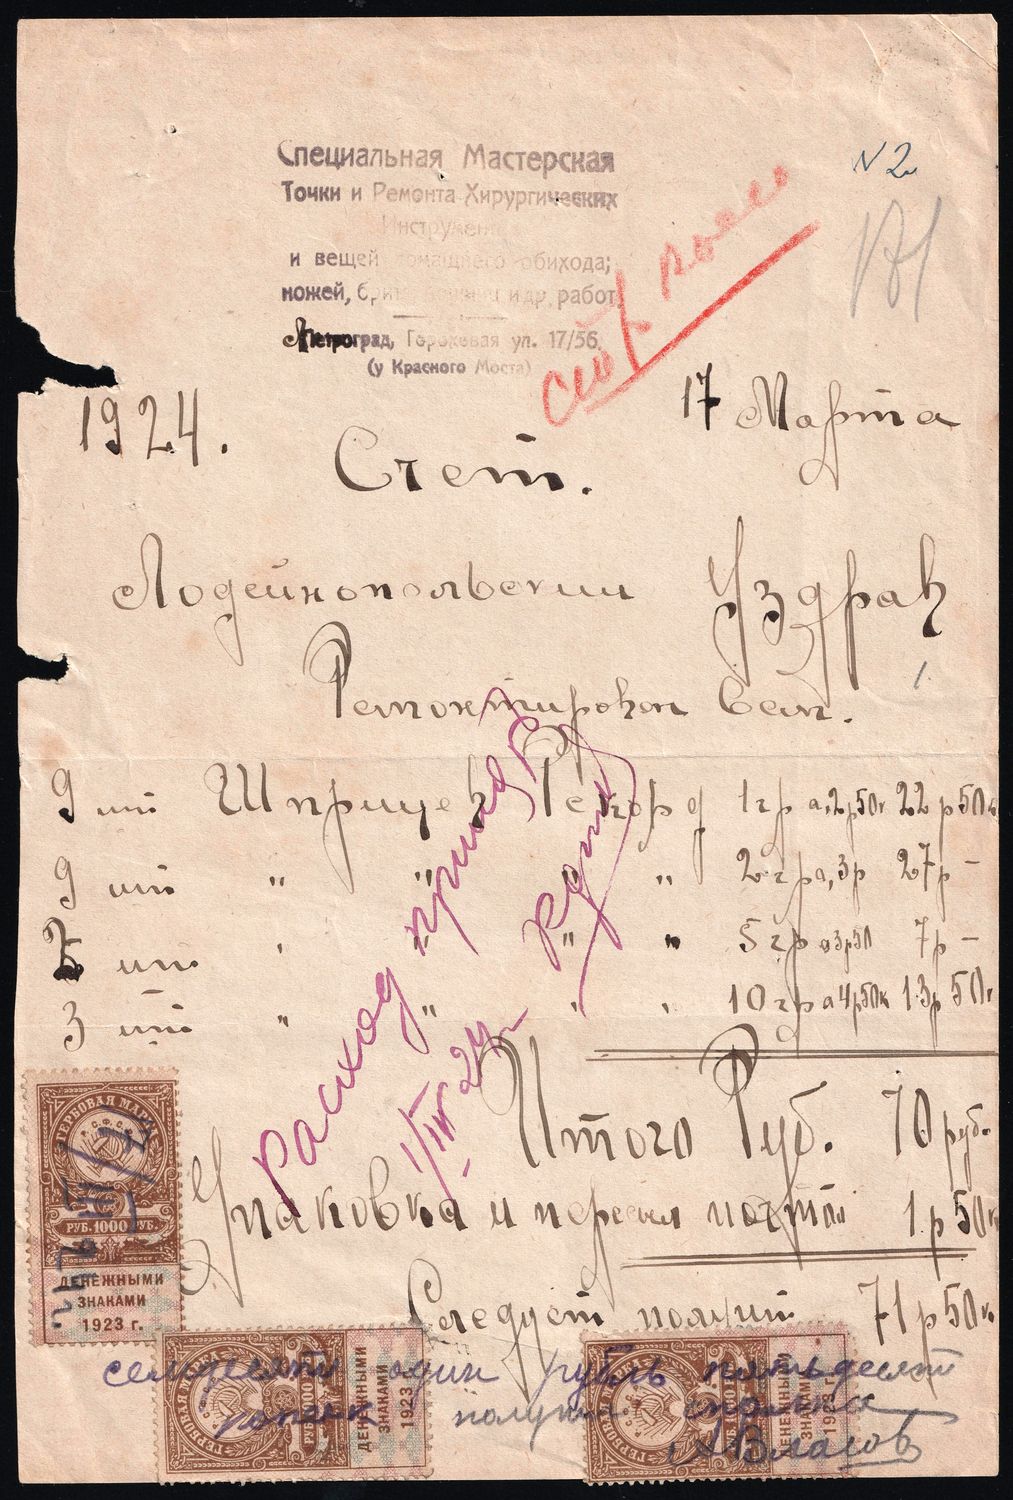 Специальная Мастерская
Точки и Ремонта Хирургических
Инструмен
и вещей домашнего обихода;
ножей, и др. работ.
Петроград, Гороховая ул. 17/56.
(у Красного Моста)
N 2
1924. 17 Марта
Счет.
Лодейнопольский Уздрав
9 шт Шприцев Рекорд 1 гр а 2р50к 22 р 50к
9 шт " " " " 2 гр а 3р 27р –
2 шт " " " " 5 гр а 3р50 7р –
3 шт " " " " 10 гр а 4р50к 13р 50к
расход
1/IV 24
Итого Руб. 70 руб.
Упаковка и пересыл почтой 1 р 50к
Следует получит 71 р 50 к
семьдесят один рубль пятьдесят
копеек получил сполна
А Власов
ГЕРБОВАЯ МАРКА
Р.С.Ф.С.Р.
РУБ. 1000 РУБ.
ДЕНЕЖНЫМИ
ЗНАКАМИ
1923 г.
ГЕРБОВАЯ МАРКА
ДЕНЕЖНЫМИ
ЗНАКАМИ
1923 г.
ГЕРБОВАЯ МАРКА
ДЕНЕЖНЫМИ
ЗНАКАМИ
1923 г.